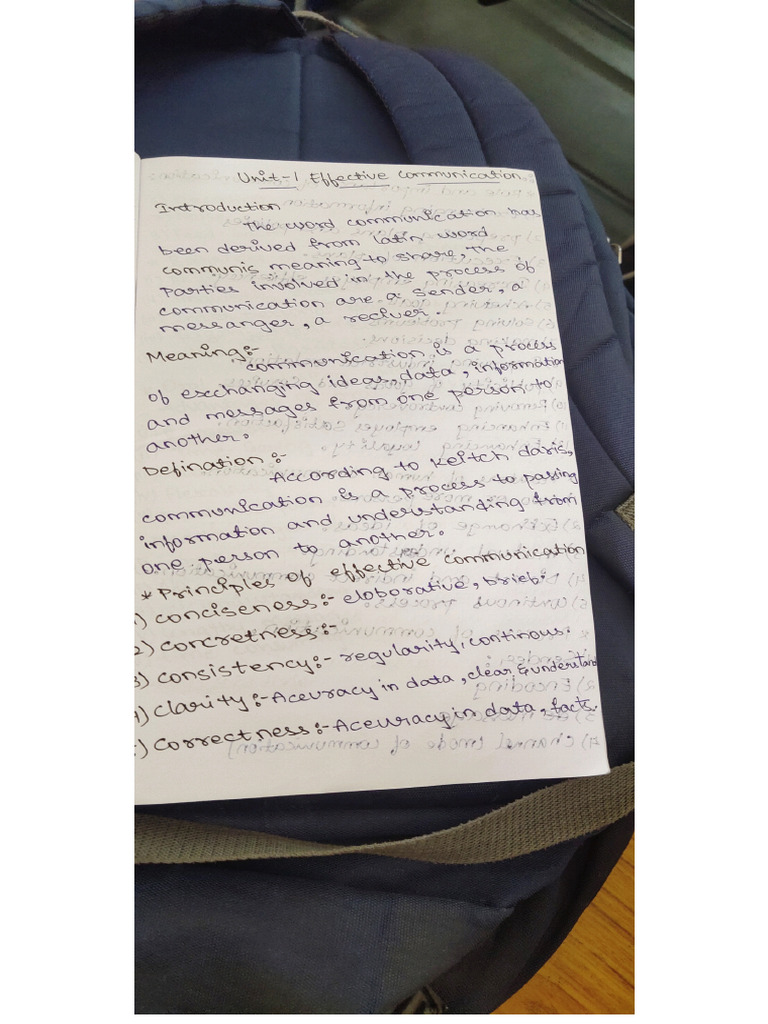 Unit-1 Effective communication
Introduction
The word communication has
been derived from latin word
communis meaning to share, The
Parties involved in the process of
communication are a sender, a
messanger, a reciver.
Meaning:-
communication is a process
of exchanging ideas, data, information
and messages from one person to
another.
Defination :-
According to Keitch daris,
communication is a process to passing
information and understanding from
one person to another.
* Principles of effective communication
1) conciseness:- eloborative, brief.
2) concretness:-
3) consistency:- regularity, continous.
4) clarity:- Aceuracy in data, clear & understand
5) correctness:- Aceuracy in data, facts.